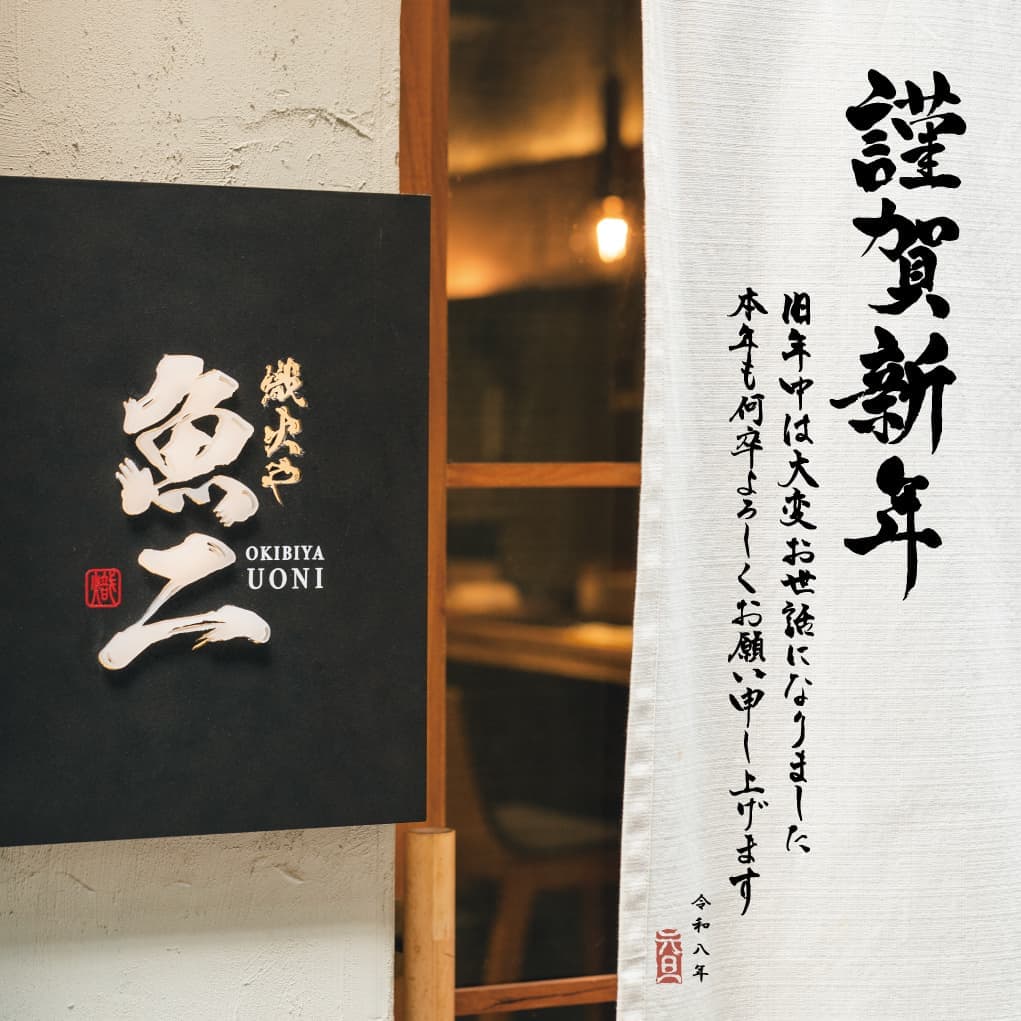 謹賀新年
旧年中は大変お世話になりました
本年も何卒よろしくお願い申し上げます
令和八年
元旦
熾火や
魚二
OKIBIYA
UONI
熾